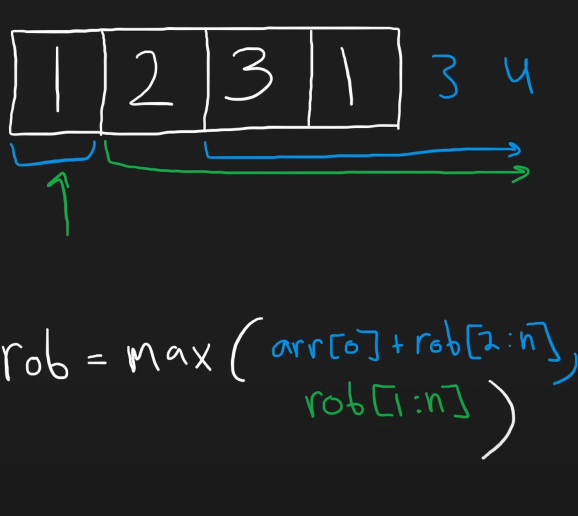 1 2 3 1 3 4
rob = max ( arr[0] + rob[2:n],
rob[1:n] )